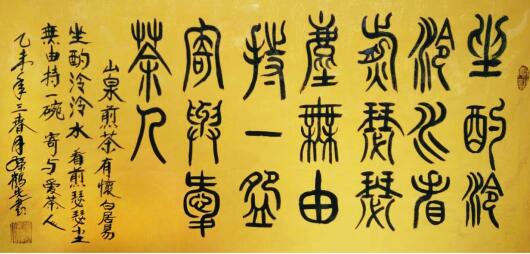 坐酌泠
泠水看
煎瑟瑟
塵無由
持一盌
寄與愛
茶人
山泉煎茶有懷白居易
坐酌泠泠水 看煎瑟瑟尘
無由持一碗 寄与爱茶人
乙未年三春月